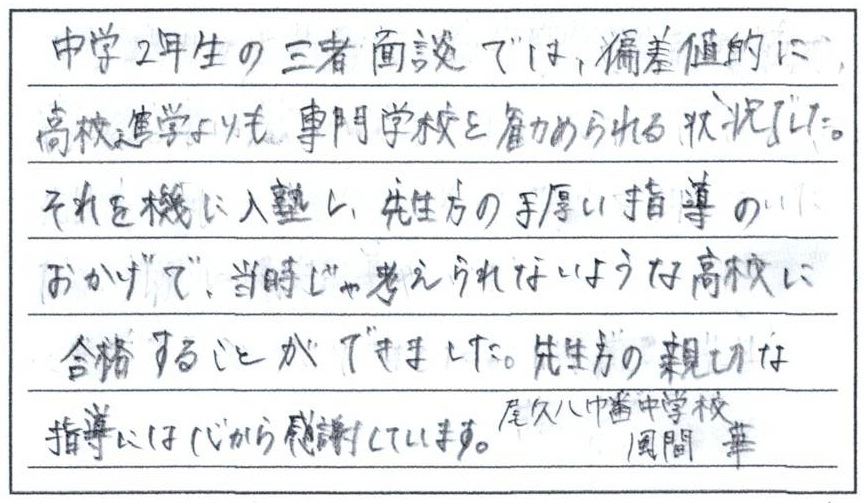 中学2年生の三者面談では、偏差値的に
高校進学よりも専門学校を勧められる状況でした。
それを機に入塾し、先生方の手厚い指導の
おかげで、当時じゃ考えられないような高校に
合格することができました。先生方の親切な
指導には心から感謝しています。
尾久八幡中学校
風間 華